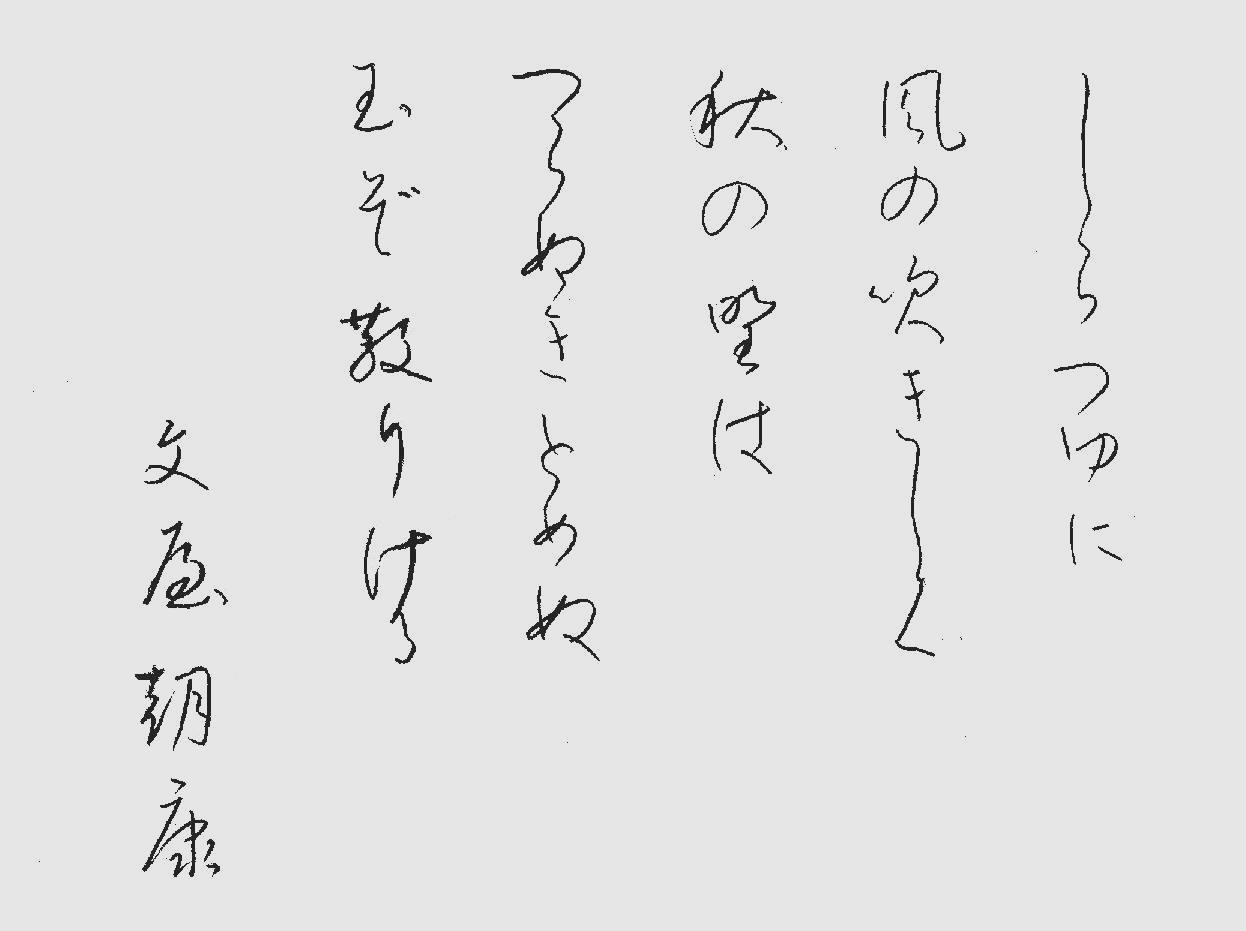 しらつゆに
風の吹きしく
秋の野は
つらぬきとめぬ
玉ぞ散りける
文屋朝康